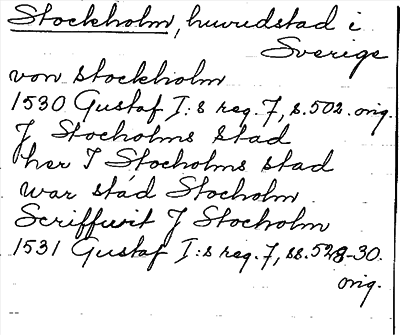 Stockholm, huvudstad i
Sverige
von stockholm
1530 Gustaf I:s reg. 7, s. 502. orig.
J Stocholms Stad
her J Stocholms stad
war stád Stocholm
Scriffuit J Stocholm
1531 Gustaf I:s reg. 7, ss. 528-30.
orig.